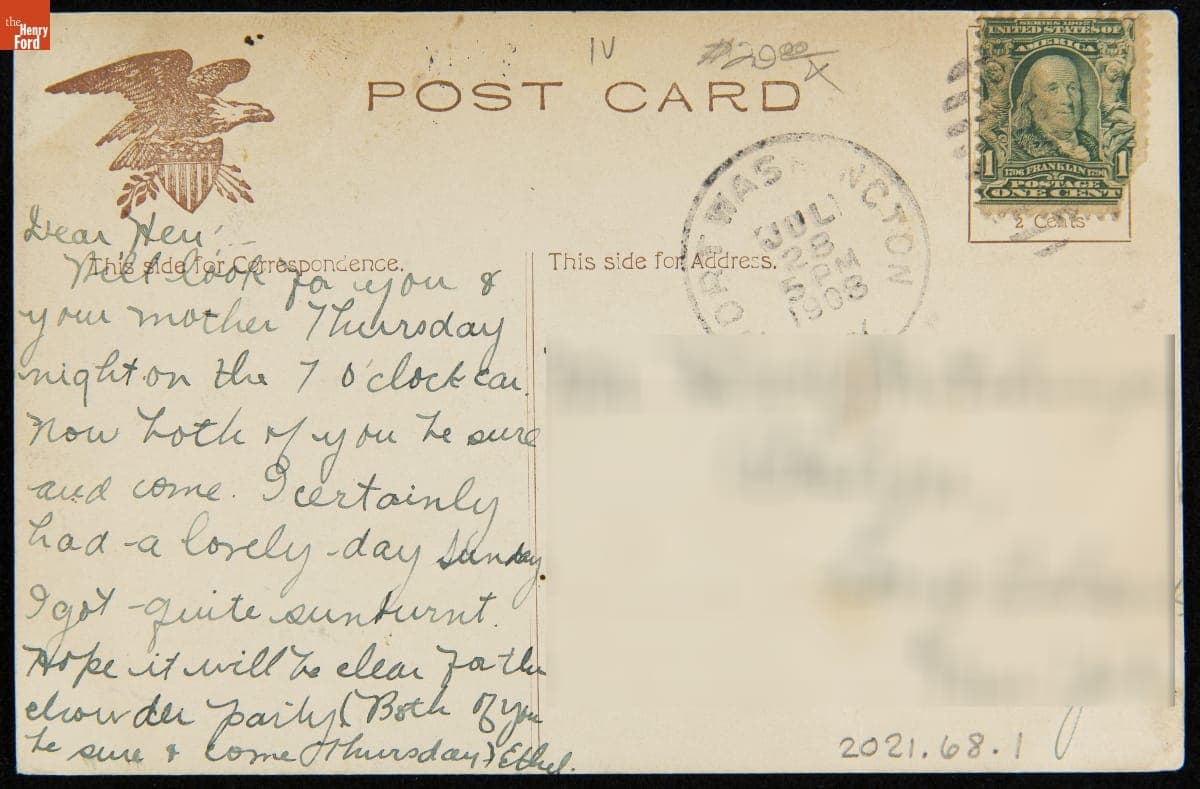 the
Henry
Ford
IV
$20.00
POST CARD
SERIES 1902
UNITED STATES OF
AMERICA
1 1
1706 FRANKLIN 1790
POSTAGE
ONE CENT
2 Cents
PORT WASHINGTON
JUL
28
5 PM
1908
This side for Correspondence.
This side for Address.
Dear Hen:-
Will look for you &
your mother Thursday
night on the 7 o'clock car.
Now both of you be sure
and come. I certainly
had a lovely day Sunday
I got quite sunburnt.
Hope it will be clear for the
chowder party (Both of you
be sure & come Thursday) Ethel.
2021.68.1